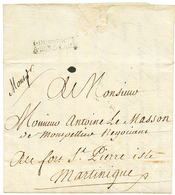 à Monsieur
Monsieur Antoine Le Masson
de Montpellier Negociant
au fort St Pierre isle
Martinique